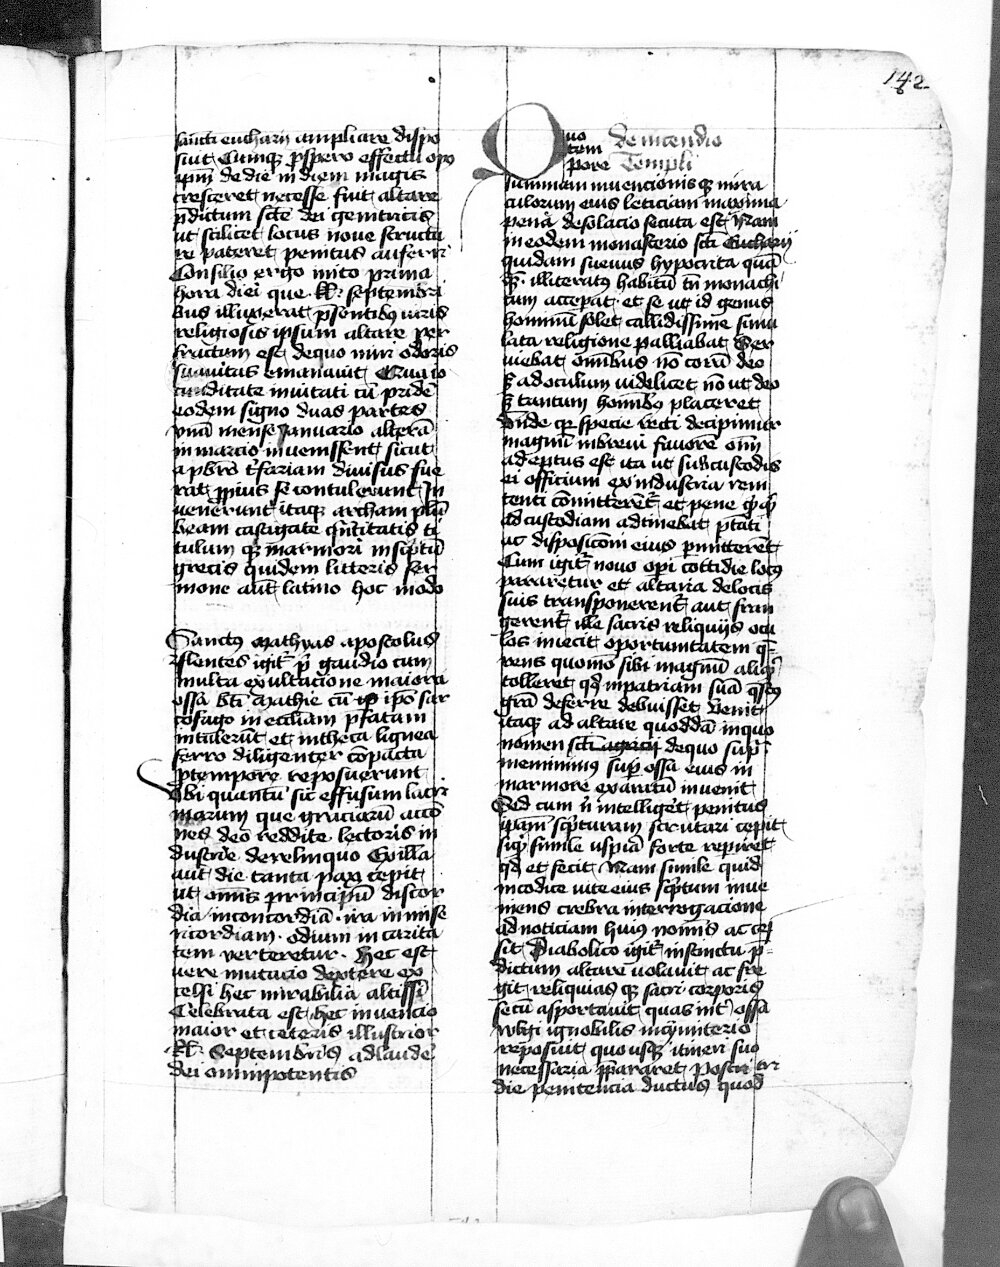 142
sancti eucharii ampliare dispo
suit Cumq̄ ꝓspero effectu opꝰ
ip̄m de die in diem magis
cresceret necesse fuit altare
p̄dictum scīe dei genitricis
ut scilicet locus noue structu
re pateret penitus auferri
Consilio ergo inito prima
hora diei que kl̄. septembri
bus illuxerat p̄sentibꝰ uiris
religiosis ipsum altare per
fractum est dequo mira odoris
suauitas emanauit
ditate inuitati cū pridē
eodem signo duas partes
vnā mense Januario alterā
in marcio inuenissent sicut
a pbrō t̄fariam diuisus fue
rat ꝓpius se contulerunt In
uenerunt itaqꝫ archam plū
beam castigate q̄ntitatis ti
tulum qꝫ marmori inscptū
grecis quidem litteris ser
mone aūt latino hoc modo
Sanctꝰ Mathyas apostolus
flentes igit̄ p̄ gaudio cum
multa exultacione maiora
ossa btī Mathie cū ip̄o sar
cofago in eccliam p̄fatam
intulerūt et intheca lignea
ferro diligenter cōpacta
ꝓ tempore reposuerunt
Vbi quantū sit effusum lacri
marum que graciarū accō
nes deo reddite lectoris in
dustrie derelinquo Ex illa
aūt die tanta pax cepit
ut om̄is principū discor
dia inconcordiā . ira in mise
ricordiam . odium in carita
tem verteretur . Hec est
uere mutacio dextere ex
celsi hec mirabilia altissī
Celebrata est hec inuencio
maior et ceteris illustrior
kl̄. Septembris adlaudē
dei omnipotentis
Quo De incendio
tem Templi
pore
summam inuencionis qꝫ mira
culorum eius leticiam maxima
pena desolacio secuta est Nam
in eodem monasterio sc̄i Eucharij
quidam sueuus hypocrita quā
qꝫ . illiteratꝰ habitū tn̄ monachi
cum acceperat . et se ut id genus
hominū solet callidissime simu
lata religione palliabat Ser
uiebat om̄ibus nō corā deo
sꝫ adoculum uidelicet nō ut deo
sꝫ tantum hominibꝰ placeret
Vnde qꝫ specie recti decipimur
magnū inbreui fauorē om̄
adeptus est ita ut subcustodis
ei officium ex industria rem
tenti cōmitterēt et pene
ad custodiam adtinebat ptāti
ac disposicōni eius ꝑmitterēt
Cum igit̄ nouo opi cottidie locꝰ
pararetur et altaria delocis
suis transponerent̄ aut fran
gerent̄ ille sacris reliquijs ocu
los iniecit oportunitatem q̄
rens quomō sibi magnū aliqͥd
tolleret qd̄ inpatriam suā
deferre debuisset Venit
itaqꝫ ad altare quoddā inquo
nomen sc̄i Agricij dequo supͣ
meminimꝰ supͣ ossa eius in
marmore exaratū inuenit
Sed cum n̄ intelliget penitus
ip̄am scpturam scrutari cepit
siqͥd simile uspiā forte repiret
qd̄ et fecit Nam simile quid
incodice uite eius scptum inue
niens crebra interrogacione
ad noticiam huiꝰ nominis
sit Diabolico igit̄ instinctu p̄
dictum altare uolauit ac fre
git . reliquias qꝫ sacri corporis
secū asportauit quas int̄ ossa
ignobilis incymiterio
reposuit quo usqꝫ itineri suo
necessaria ꝓpararet Posteriori
die penitencia ductus quod